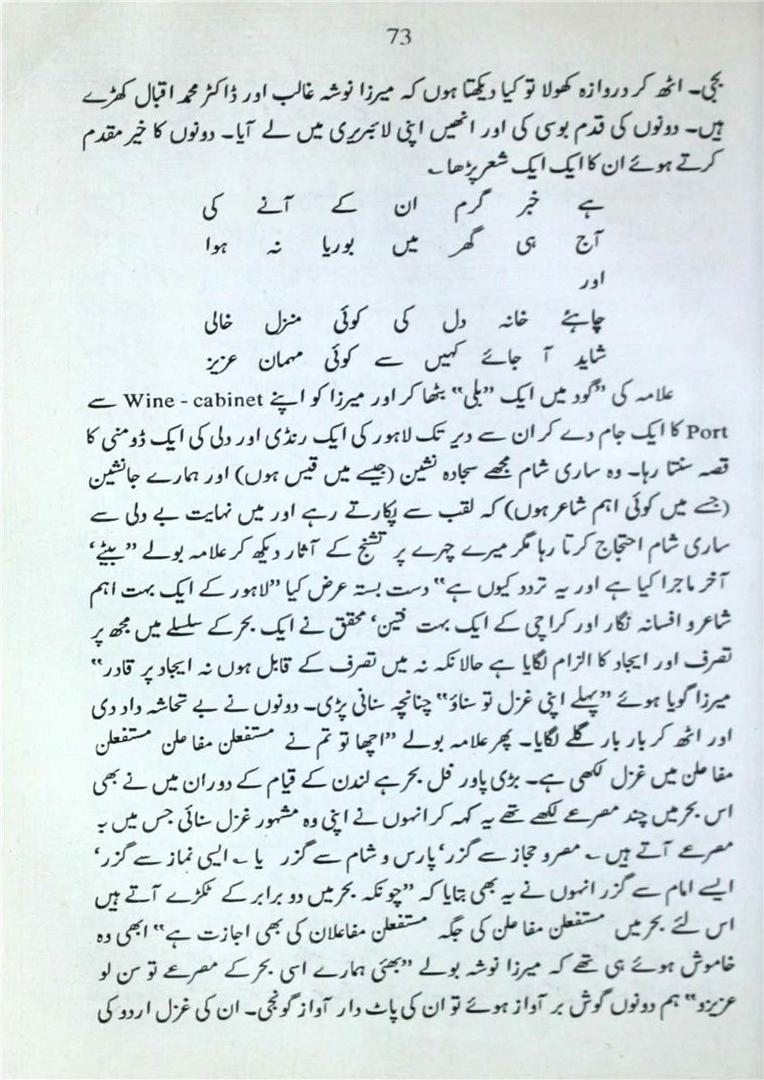 73
بجی۔ اٹھ کر دروازہ کھولا تو کیا دیکھتا ہوں کہ میرزا نوشہ غالب اور ڈاکٹر محمد اقبال کھڑے
ہیں۔ دونوں کی قدم بوسی کی اور انھیں اپنی لائبریری میں لے آیا۔ دونوں کا خیر مقدم
کرتے ہوئے ان کا ایک ایک شعر پڑھا ؎
ہے خبر گرم ان کے آنے کی
آج ہی گھر میں بوریا نہ ہوا
اور
چاہئے خانہ دل کی کوئی منزل خالی
شاید آ جائے کہیں سے کوئی مہمان عزیز
علامہ کی ”گود میں ایک ”بلی“ بٹھا کر اور میرزا کو اپنے Wine - cabinet سے
Port کا ایک جام دے کر ان سے دیر تک لاہور کی ایک رنڈی اور دلی کی ایک ڈومنی کا
قصہ سنتا رہا۔ وہ ساری شام مجھے سجادہ نشین (جیسے میں قیس ہوں) اور ہمارے جانشین
(جسے میں کوئی اہم شاعر ہوں) کہ لقب سے پکارتے رہے اور میں نہایت بے دلی سے
ساری شام احتجاج کرتا رہا مگر میرے چہرے پر تشنج کے آثار دیکھ کر علامہ بولے ”بیٹے‘
آخر ماجرا کیا ہے اور یہ تردد کیوں ہے“ دست بستہ عرض کیا ”لاہور کے ایک بہت اہم
شاعر و افسانہ نگار اور کراچی کے ایک بہت فتین‘ محقق نے ایک بحر کے سلسلے میں مجھ پر
تصرف اور ایجاد کا الزام لگایا ہے حالانکہ نہ میں تصرف کے قابل ہوں نہ ایجاد پر قادر“
میرزا گویا ہوئے ”پہلے اپنی غزل تو سناؤ“ چنانچہ سنانی پڑی۔ دونوں نے بے تحاشہ داد دی
اور اٹھ کر بار بار گلے لگایا۔ پھر علامہ بولے ”اچھا تو تم نے مستفعلن مفا علن مستفعلن
مفا علن میں غزل لکھی ہے۔ بڑی پاور فل بحر ہے لندن کے قیام کے دوران میں نے بھی
اس بحر میں چند مصرعے لکھے تھے یہ کہہ کر انہوں نے اپنی وہ مشہور غزل سنائی جس میں یہ
مصرعے آتے ہیں ؎ مصر و حجاز سے گزر‘ پارس و شام سے گزر یا ؎ ایسی نماز سے گزر‘
ایسے امام سے گزر انہوں نے یہ بھی بتایا کہ ”چونکہ بحر میں دو برابر کے ٹکڑے آتے ہیں
اس لئے بحر میں مستفعلن مفا علن کی جگہ مستفعلن مفاعلان کی بھی اجازت ہے“ ابھی وہ
خاموش ہوئے ہی تھے کہ میرزا نوشہ بولے ”بھئی ہمارے اسی بحر کے مصرعے تو سن لو
عزیزو“ ہم دونوں گوش بر آواز ہوئے تو ان کی پاٹ دار آواز گونجی۔ ان کی غزل اردو کی